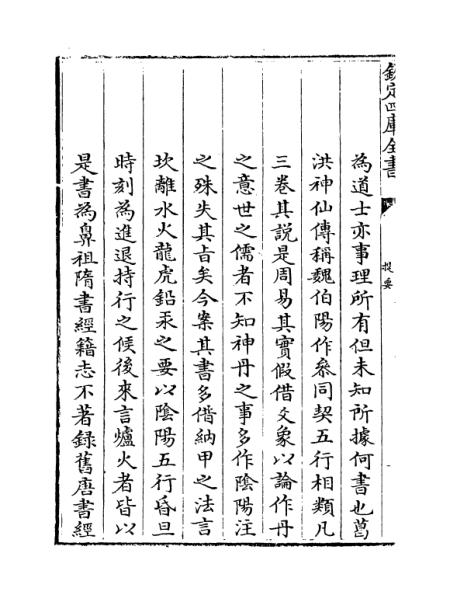 欽定四庫全書
提要
為道士亦事理所有但未知所據何書也葛
洪神仙傳稱魏伯陽作叅同契五行相類凡
三卷其説是周易其實假借爻象以論作丹
之意世之儒者不知神丹之事多作陰陽注
之殊失其㫖矣今案其書多借納甲之法言
坎離水火龍虎鉛汞之要以陰陽五行昏旦
時刻為進退持行之候後來言爐火者皆以
是書為鼻祖隋書經籍志不著録舊唐書經